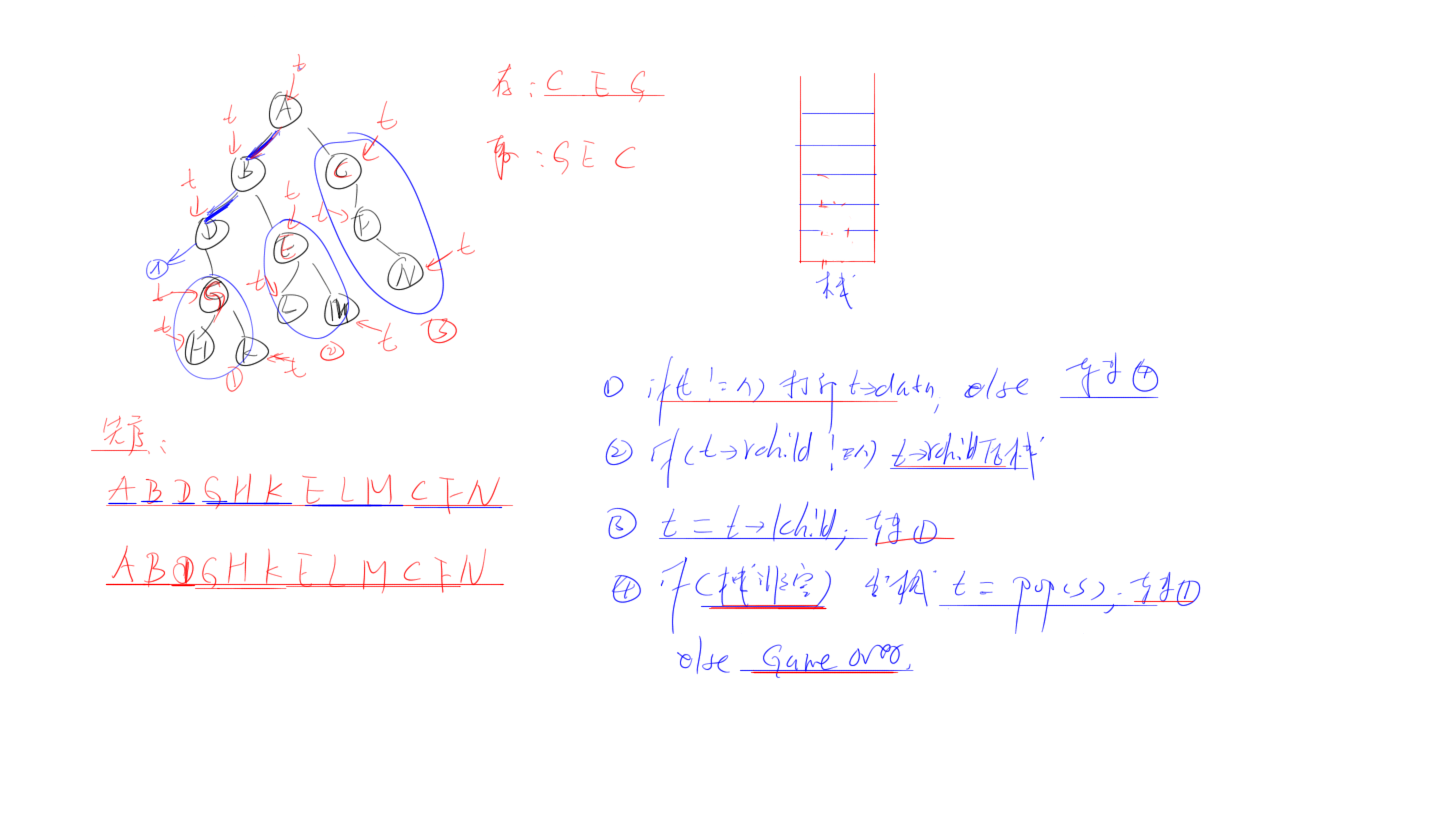 t
A
t
B
t
C
t
D
t
E
t
F
N
t
∧
t
G
t
L
M
t
③
t
H
K
t
①
②
存:C E G
取:G E C
栈
先序:
A B D G H K E L M C F N
A B D G H K E L M C F N
① if(t !=∧) 打印 t→data, else 转到④
② if(t→rchild !=∧) t→rchild压栈
③ t = t→lchild; 转到①
④ if(栈非空) 出栈 t = pop(s); 转到①
else Game over.